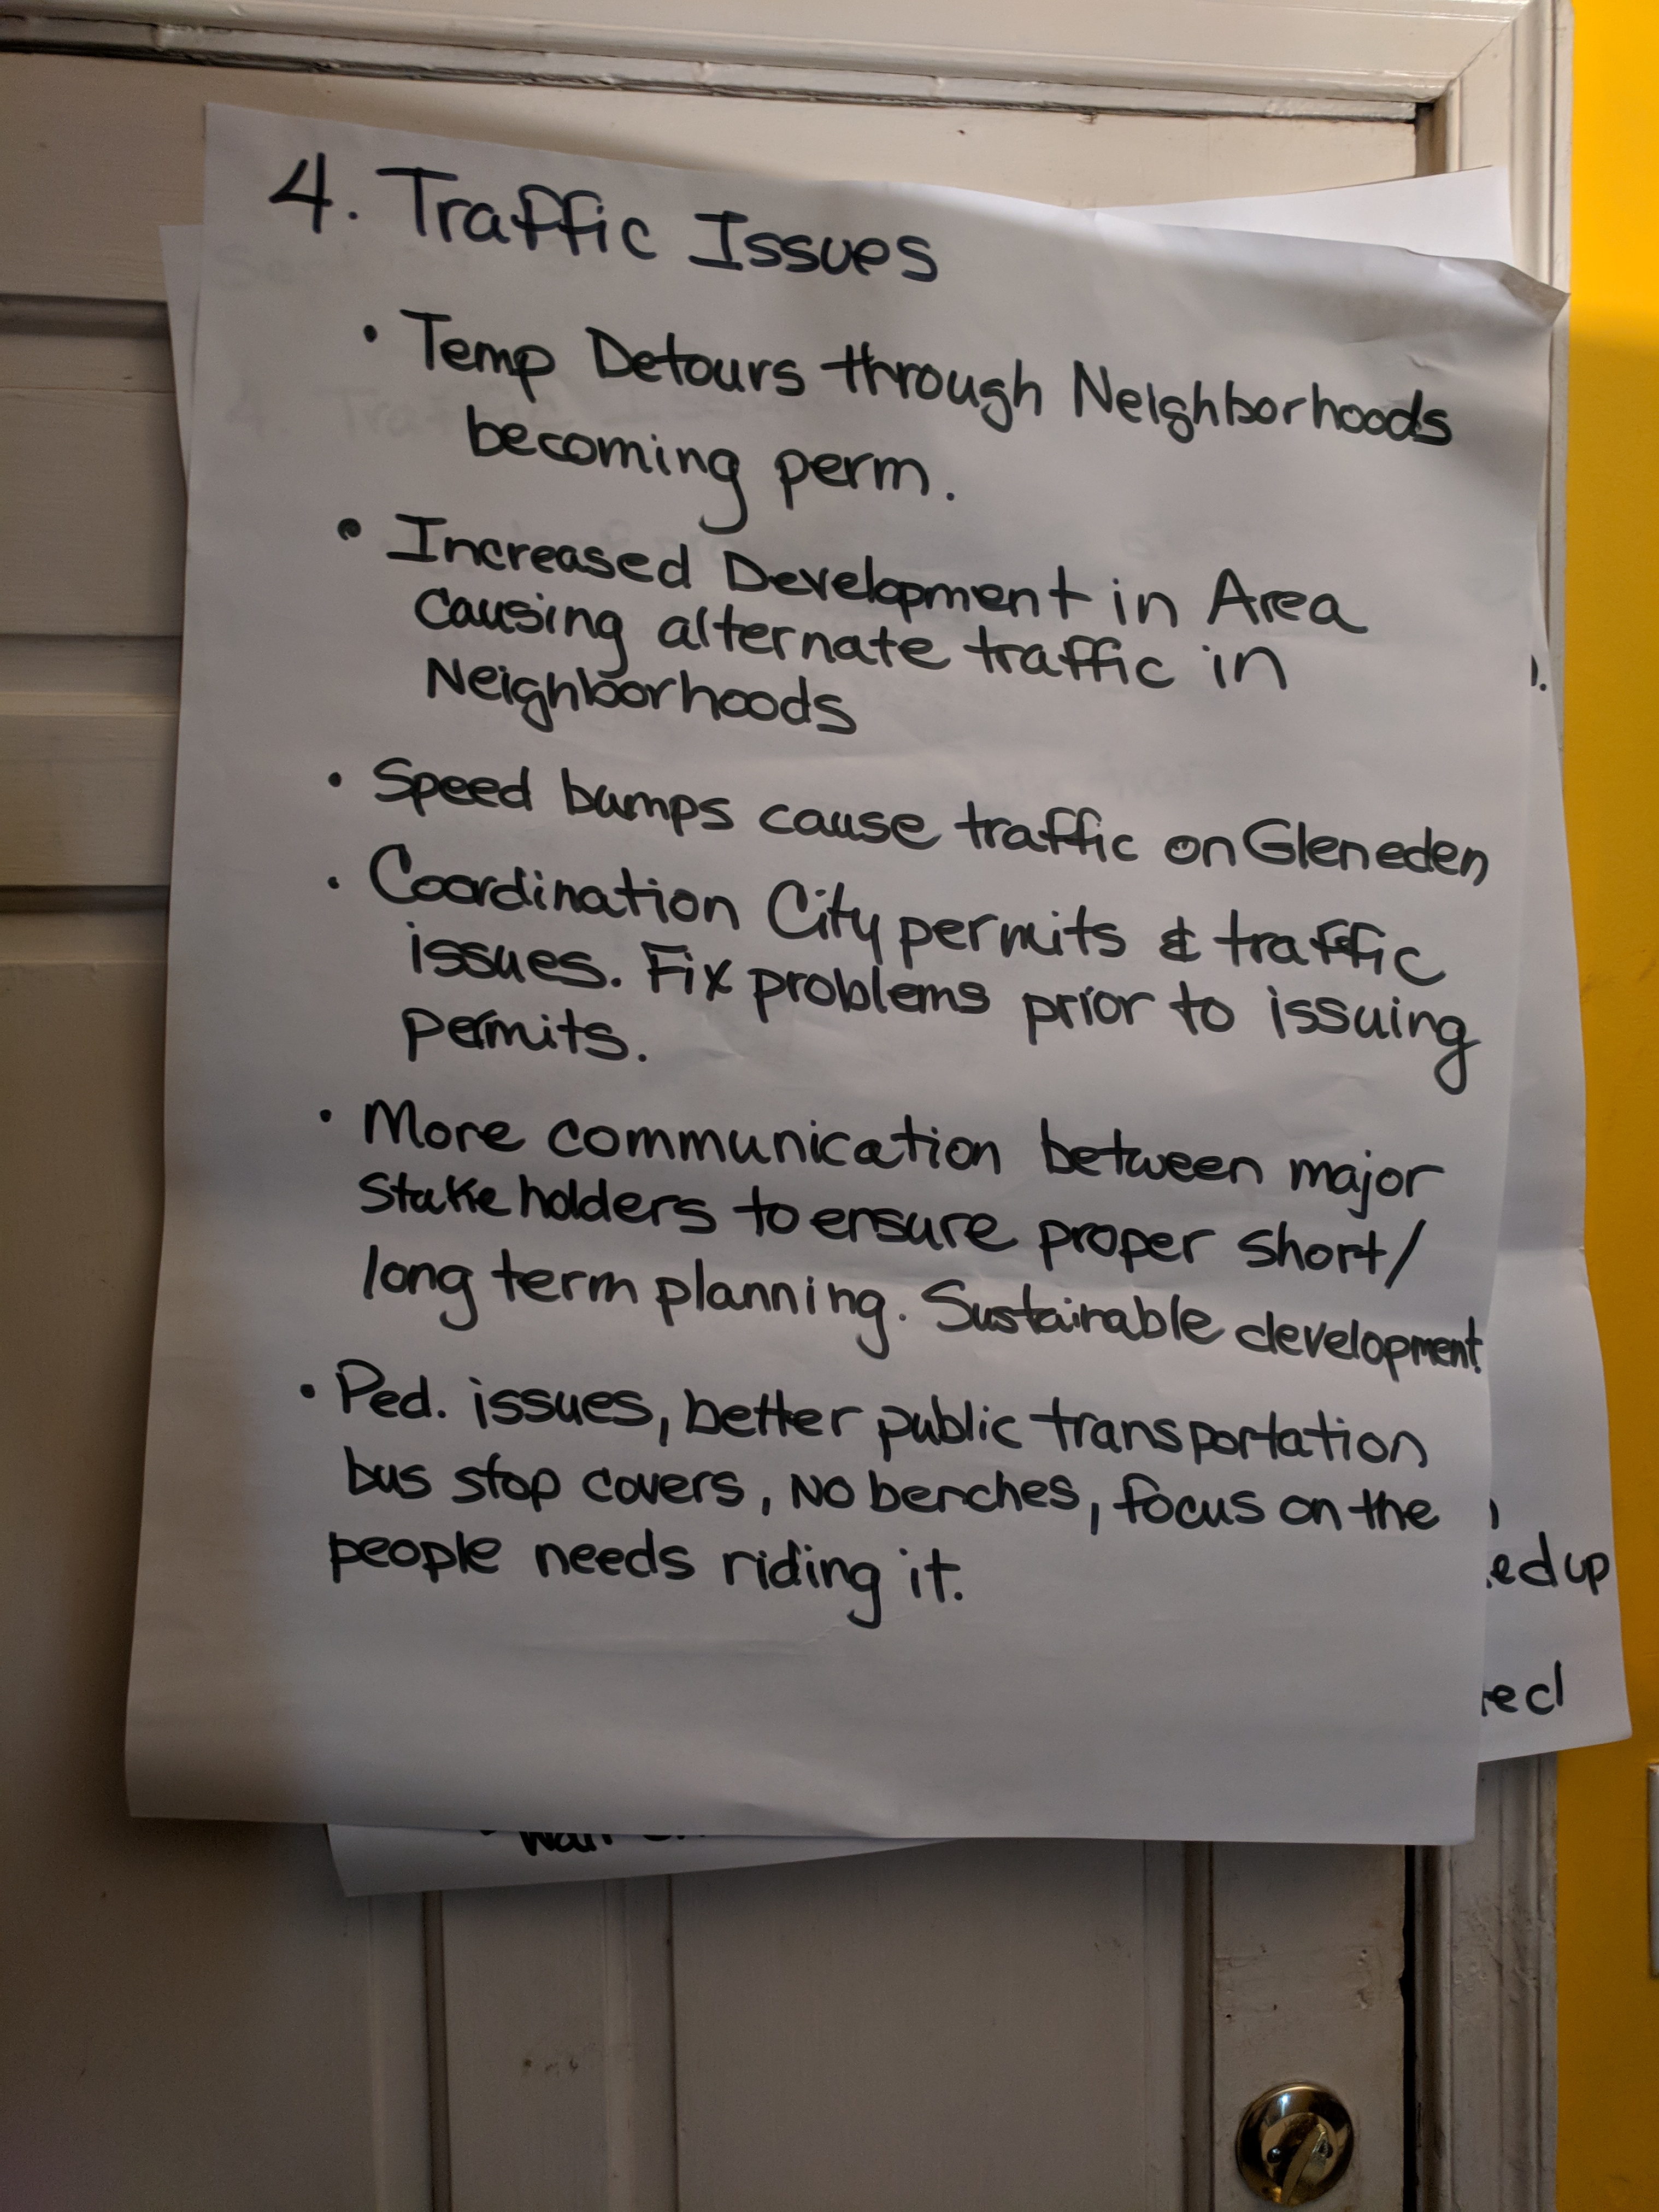 4. Traffic Issues
• Temp Detours through Neighborhoods
becoming perm.
• Increased Development in Area
causing alternate traffic in
Neighborhoods
• Speed bumps cause traffic on Gleneden
• Coordination City permits & traffic
issues. Fix problems prior to issuing
permits.
• More communication between major
Stake holders to ensure proper short/
long term planning. Sustainable development
• Ped. issues, better public transportation
bus stop covers, No benches, focus on the
people needs riding it.
ed up